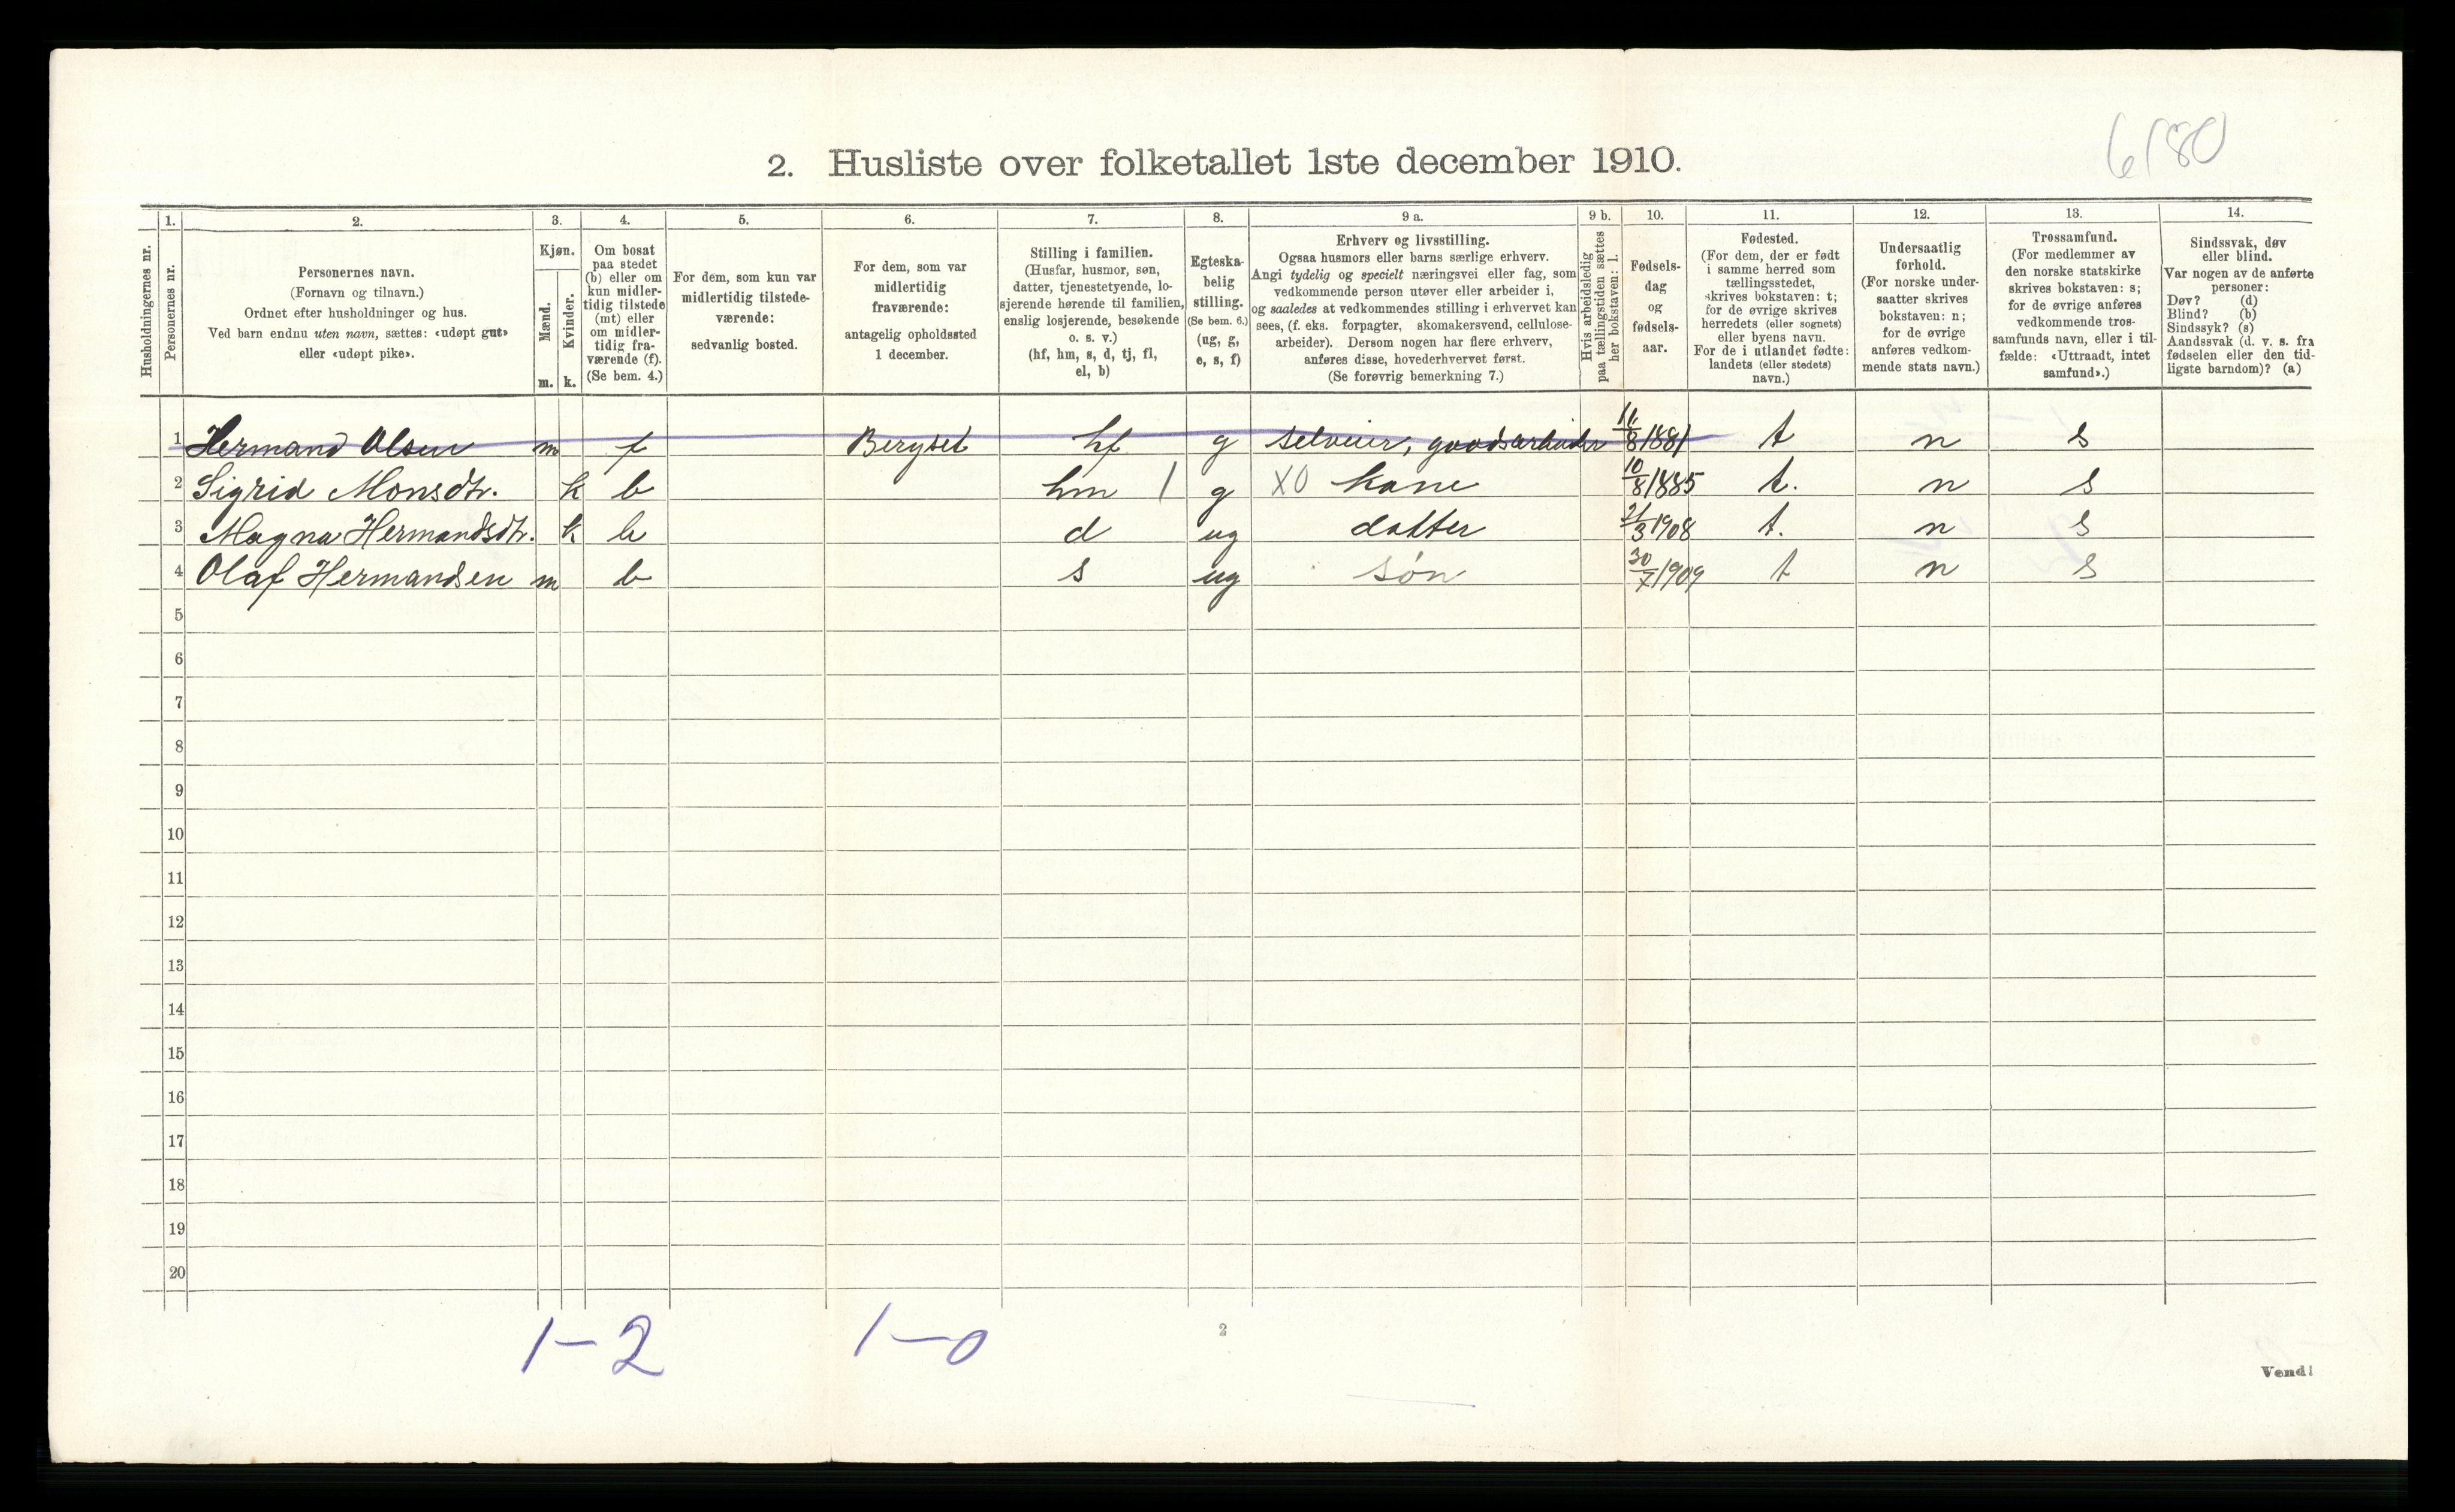 6180
2. Husliste over folketallet 1ste december 1910.
Husholdningernes nr.
1.
Personernes nr.
2.
Personernes navn.
(Fornavn og tilnavn.)
Ordnet efter husholdninger og hus.
Ved barn endnu uten navn, sættes: «udøpt gut»
eller «udøpt pike».
3.
Kjøn.
Mænd.
m.
Kvinder.
k.
4.
Om bosat
paa stedet
(b) eller om
kun midler-
tidig tilstede
(mt) eller
om midler-
tidig fra-
værende (f).
(Se bem. 4.)
5.
For dem, som kun var
midlertidig tilstede-
værende:
sedvanlig bosted.
6.
For dem, som var
midlertidig
fraværende:
antagelig opholdssted
1 december.
7.
Stilling i familien.
(Husfar, husmor, søn,
datter, tjenestetyende, lo-
sjerende hørende til familien,
enslig losjerende, besøkende
o. s. v.)
(hf, hm, s, d, tj, fl,
el, b)
8.
Egteska-
belig
stilling.
(Se bem. 6.)
(ug, g,
e, s, f)
9 a.
Erhverv og livsstilling.
Ogsaa husmors eller barns særlige erhverv.
Angi tydelig og specielt næringsvei eller fag, som
vedkommende person utøver eller arbeider i,
og saaledes at vedkommendes stilling i erhvervet kan
sees, (f. eks. forpagter, skomakersvend, cellulose-
arbeider). Dersom nogen har flere erhverv,
anføres disse, hovederhvervet først.
(Se forøvrig bemerkning 7.)
9 b.
Hvis arbeidsledig
paa tællingstiden sættes
her bokstaven: l.
10.
Fødsels-
dag
og
fødsels-
aar.
11.
Fødested.
(For dem, der er født
i samme herred som
tællingsstedet,
skrives bokstaven: t;
for de øvrige skrives
herredets (eller sognets)
eller byens navn.
For de i utlandet fødte:
landets (eller stedets)
navn.)
12.
Undersaatlig
forhold.
(For norske under-
saatter skrives
bokstaven: n;
for de øvrige
anføres vedkom-
mende stats navn.)
13.
Trossamfund.
(For medlemmer av
den norske statskirke
skrives bokstaven: s;
for de øvrige anføres
vedkommende tros-
samfunds navn, eller i til-
fælde: «Uttraadt, intet
samfund».)
14.
Sindssvak, døv
eller blind.
Var nogen av de anførte
personer:
Døv? (d)
Blind? (b)
Sindssyk? (s)
Aandssvak (d. v. s. fra
fødselen eller den tid-
ligste barndom)? (a)
1 Hermand Olsen m f Bergset hf g selveier, goodsarbeider 11/8 1881 t n s
2 Sigrid Monsdtr. k b hm 1 g XO kone 10/8 1885 t. n s
3 Magna Hermandsdtr. k b d ug datter 21/3 1908 t. n s
4 Olaf Hermandsen m b s ug søn 30/7 1909 t n s
5
6
7
8
9
10
11
12
13
14
15
16
17
18
19
20
1-2 1-0
2
Vend!